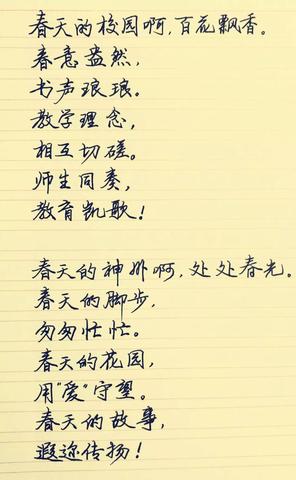 春天的校园啊,百花飘香。
春意盎然,
书声琅琅。
教学理念,
相互切磋。
师生同奏,
教育凯歌!
春天的神外啊,处处春光。
春天的脚步,
匆匆忙忙。
春天的花园,
用"爱"守望。
春天的故事,
遐迩传扬!